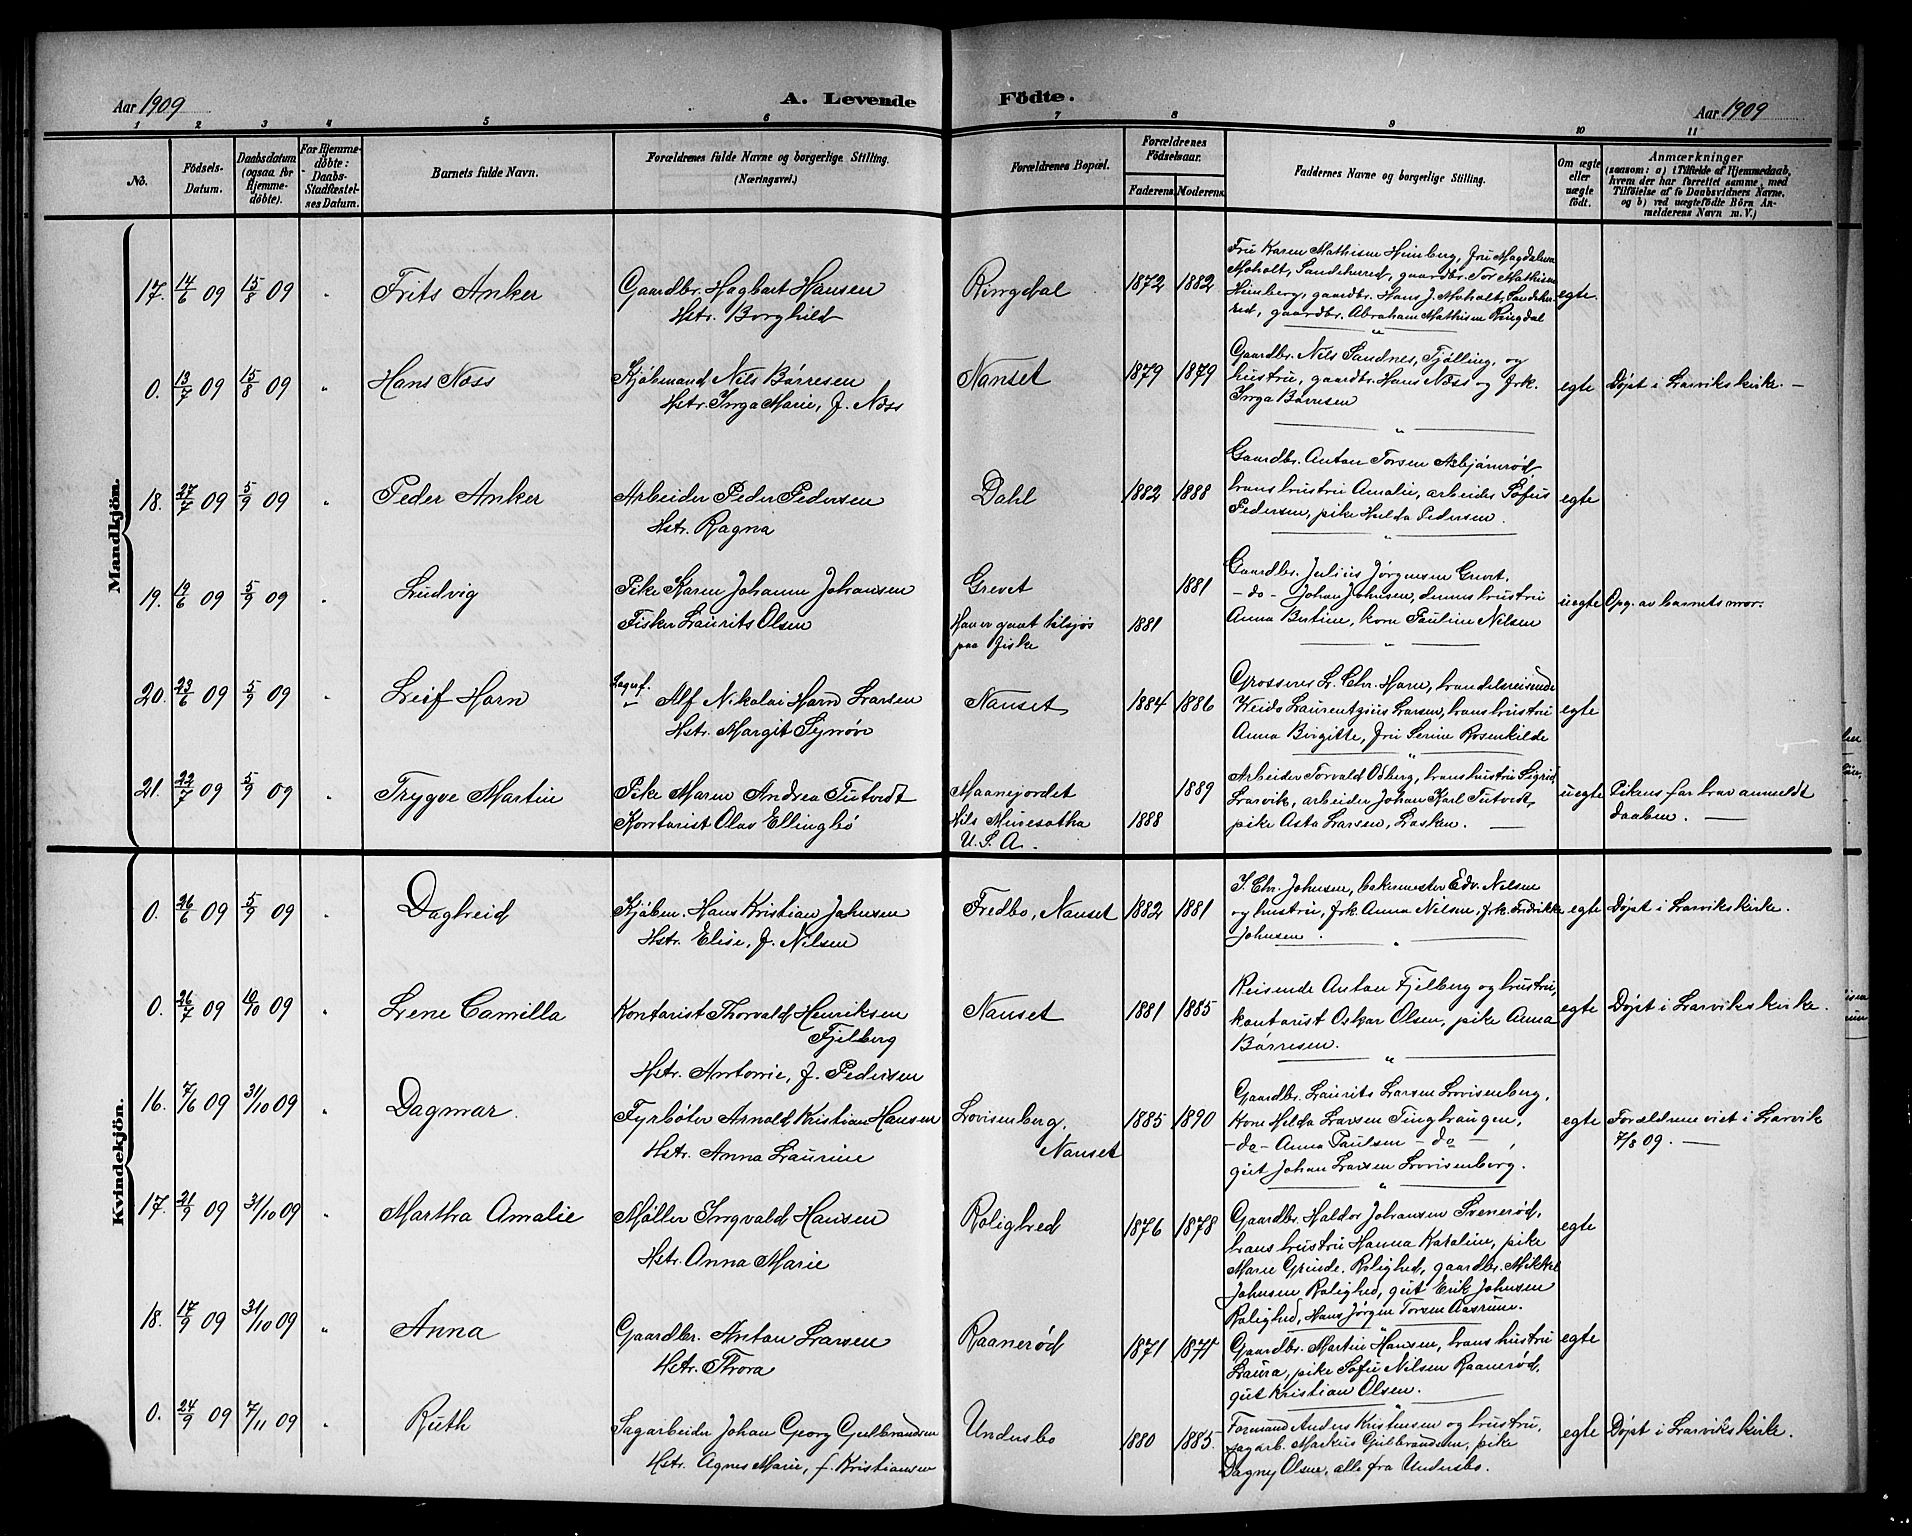 Aar 1909
A. Levende
Födte.
Aar 1909
1 2 3 4 5 6 7 8 9 10 11
No.
Födsels-
Datum.
Daabsdatum
(ogsaa for
Hjemme-
døbte).
For Hjemme-
døbte:
Daabs-
Stadfæstel-
ses Datum.
Barnets fulde Navn.
Forældrenes fulde Navne og borgerlige Stilling.
(Næringsvei.)
Forældrenes Bopæl.
Forældrenes
Födselsaar.
Faderens. Moderens.
Faddernes Navne og borgerlige Stilling.
Om ægte
eller
uægte
födt.
Anmærkninger
(saasom: a) i Tilfælde af Hjemmedaab,
hvem der har forrettet samme, med
Tilföielse af to Daabsvidners Navne,
og b) ved uægtefödte Börn An-
melderens Navn m. V.)
Mandkjön.
17. 14/6 09 15/8 09 " Frits Anker
Gaardbr. Hagbart Hansen
Hstr. Borghild
Ringdal 1872 1882
Fru Karen Mathisen Himberg, fru Magdalena
Moholt, Sandeherred, gaardbr. Tor Mathisen
Himberg, gaardbr. Hans J. Moholt, Sandeher-
red, gaardbr. Abraham Mathisen Ringdal
egte.
0. 13/7 09 15/8 09 " Hans Næss
Kjöbmand Nils Börresen
Hstr. Inga Marie, f. Næss
Nanset 1879 1879
Gaardbr. Nils Sandnes, Tjølling, og
hustru, gaardbr. Hans Næss og frk.
Inga Börresen
egte Døpt i Larviks kirke. —
18. 27/7 09 5/9 09 " Peder Anker
Arbeider Peder Pedersen
Hstr. Ragna
Dahl 1882 1888
Gaardbr. Anton Torsen Asbjörnrød,
hans hustru Amalie, arbeider Sofus
Pedersen, pike Hulda Pedersen.
egte
19. 19/6 09 5/9 09 " Ludvig
Pike Karen Johanne Johansen
Fisker Laurits Olsen
Grevet 1881
Han er gaat tilsjøs 1881
paa fiske
Gaardbr. Julius Jørgensen Grevet,
— do — Johan Johnsen, dennes hustru
Anna Bertine, kone Pauline Nilsen
uegte Opg. av barnets mor.
20. 23/6 09 5/9 09 " Leif Horn
Lagerf. Alf Nikolai Horn Larsen
Hstr. Margit Synnøve
Nanset 1884 1886
Grosserer L. Chr. Horn, handelsreisende
Laurentzius Larsen, hans hustru
Anna Birgitte, fru Serine Rosenkilde
egte
21. 22/7 09 5/9 09 " Trygve Martin
Pike Maren Andrea Tutvedt
Kontorist Olav Ellingbö
Maanejordet 1889
Nils Minesotha 1888
U. S. A.
Arbeider Torvald Odberg, hans hustru Sigrid
Larvik, arbeider Johan Karl Tutvedt,
pike Asta Larsen, Lasken. —
uegte Pikens far har anmeldt
daaben. —
Kvindekjön.
0. 26/6 09 5/9 09 " Dagheid
Kjöbm. Hans Kristian Johnsen
Hstr. Elise, f. Nilsen
Fredbo, Nanset 1882 1881
J. Chr. Johnsen, bakermester Edv. Nilsen
og hustru, frk. Anna Nilsen, frk. Fredrikke
Johnsen.
egte Døpt i Larviks kirke.
0. 26/7 09 10/10 09 " Lene Camilla
Kontorist Thorvald Henriksen
Fjelberg
Hstr. Antonie, f. Pedersen
Nanset 1881 1885
Reisende Anton Fjelberg og hustru,
kontorist Oskar Olsen, pike Anna
Börresen.
egte Døpt i Larviks kirke.
16. 7/6 09 31/10 09 " Dagmar.
Fyrbøter Arnold Kristian Hansen
Hstr. Anna Laurine
Lovisenberg, 1885 1890
Nanset
Gaardbr. Laurits Larsen Lovisenberg,
Kone Hilda Larsen Tinghaugen,
— do — Anna Paulsen — do —,
gut Johan Larsen Lovisenberg.
egte Forældrene viet i Larvik
7/8 09. —
17. 21/9 09 31/10 09 " Martha Amalie
Møller Ingvald Hansen
Hstr. Anna Marie
Rolighed 1876 1878
Gaardbr. Haldor Johansen Svenerød,
hans hustru Hanna Karoline, pike
Marie Grinde, Rolighed, gaardbr. Mikkel
Johnsen Rolighed, gut Erik Johnsen
Rolighed, Hans Jørgen Torsen Aasrum.
egte
18. 17/9 09 31/10 09 " Anna
Gaardbr. Anton Larsen
Hstr. Thora
Raanerød 1871 1871
Gaardbr. Martin Hansen, hans hustru
Laura, pike Sofie Nilsen Raanerød,
gut Kristian Olsen.
egte
0. 24/9 09 7/11 09 " Ruth
Sagarbeider Johan Georg Gulbrandsen
Hstr. Agnes Marie, f. Kristiansen
Undersbo 1880 1885.
Formand Anders Kristensen og hustru,
sagarb. Markus Gulbrandsen, pike
Dagny Olsen, alle fra Undersbo.
egte Døpt i Larviks kirke.